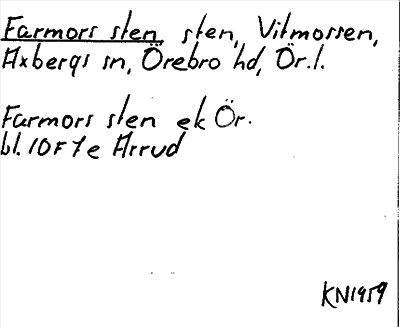 Farmors sten sten, Vitmossen,
Axbergs sn, Örebro hd, Ör.l.
Farmors sten ek Ör.
bl. 10F7e Arrud
KN1959